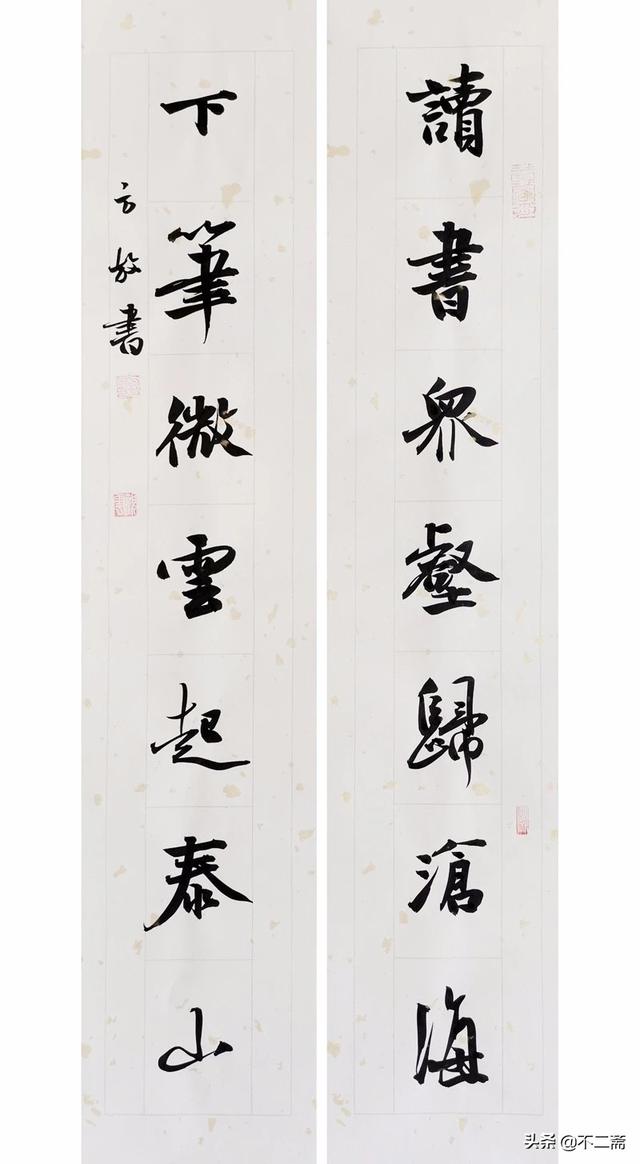 讀書眾壑歸滄海
下筆微雲起泰山
方放書
头条 @不二斋